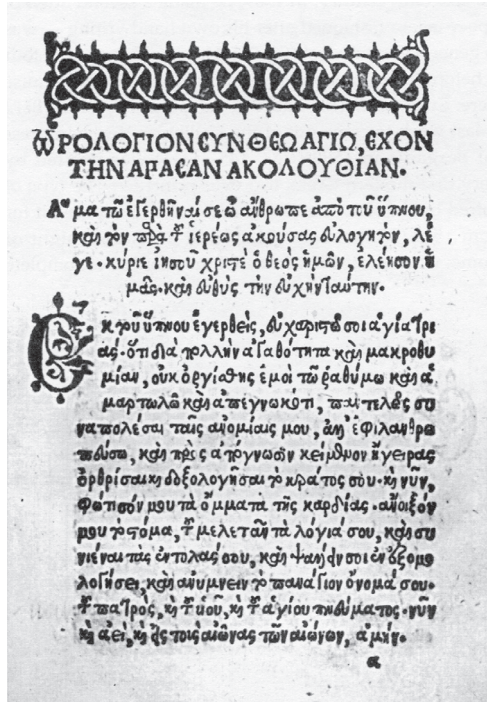 ὩΡΟΛΟΓΙΟΝ ΣΥΝ ΘΕΩ ΑΓΙΩ, ΕΧΟΝ
ΤΗΝ ΑΠΑΣΑΝ ΑΚΟΛΟΥΘΙΑΝ.
Ἅμα τῶ ἐγερθῆναί σε ὦ ἄνθρωπε ἀπὸ τοῦ ὕπνου,
καὶ τὸν παρὰ τοῦ ἱερέως ἀκούσας εὐλογητὸν, λέ
γε· κύριε ἰησοῦ χριστὲ ὁ θεὸς ἡμῶν, ἐλέησον ἡ
μᾶς· καὶ εὐθὺς τὴν εὐχὴν ταύτην.
Ἐκ τοῦ ὕπνου ἐγερθεὶς, εὐχαριστῶ σοι ἁγία τρι
ὰς· ὅτι διὰ πολλὴν ἀγαθότητα καὶ μακροθυ
μίαν, οὐκ ὀργίσθης ἐμοὶ τῶ ῥαθύμω καὶ ἁ
μαρτωλῶ καὶ ἀπεγνωκότι, παντελῶς συ
ναπολέσαι ταῖς ἀνομίαις μου, ἀλλ' ἐφιλανθρω
πεύσω, καὶ πρὸς ἀπόγνωσιν κείμενον ἤγειρας
ὀρθρίσαι καὶ δοξολογῆσαι τὸ κράτος σου· καὶ νῦν,
φώτισόν μου τὰ ὄμματα τῆς καρδίας· ἄνοιξόν
μου τὸ στόμα, τοῦ μελετᾶν τὰ λόγιά σου, καὶ συ
νιέναι τὰς ἐντολάς σου, καὶ ψάλλειν σοι ἐν ἐξομο
λογήσει, καὶ ἀνυμνεῖν τὸ πανάγιον ὄνομά σου·
τοῦ πατρὸς, καὶ τοῦ υἱοῦ, καὶ τοῦ ἁγίου πνεύματος· νῦν
καὶ ἀεὶ, καὶ εἰς τοὺς αἰῶνας τῶν αἰώνων, ἀμήν.
α